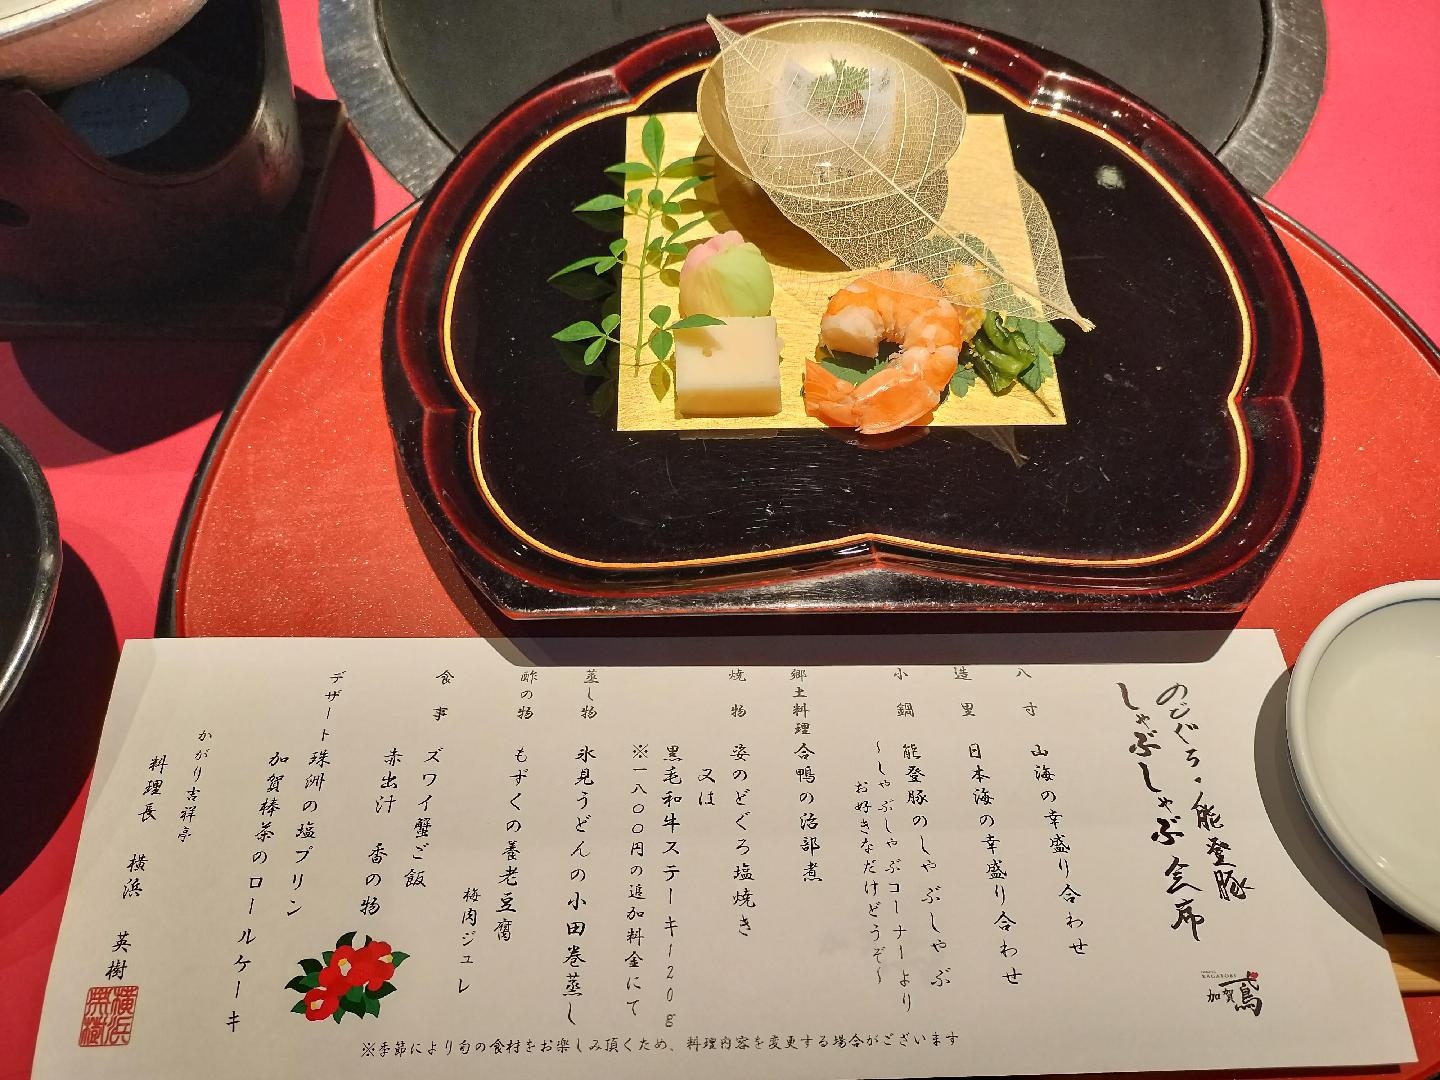 のどぐろ・能登豚
しゃぶしゃぶ会席
KAGATOBI
加賀鳶
八寸 山海の幸盛り合わせ
造里 日本海の幸盛り合わせ
小鍋 能登豚のしゃぶしゃぶ
~しゃぶしゃぶコーナーより
お好きなだけどうぞ~
郷土料理 合鴨の治部煮
焼物 姿のどぐろ塩焼き
又は
黒毛和牛ステーキ120g
※一八〇〇円の追加料金にて
蒸し物 氷見うどんの小田巻蒸し
酢の物 もずくの養老豆腐
梅肉ジュレ
食事 ズワイ蟹ご飯
赤出汁 香の物
デザート 珠洲の塩プリン
加賀棒茶のロールケーキ
かがり吉祥亭
料理長 横浜 英樹
横浜英樹
※季節により旬の食材をお楽しみ頂くため、料理内容を変更する場合がございます